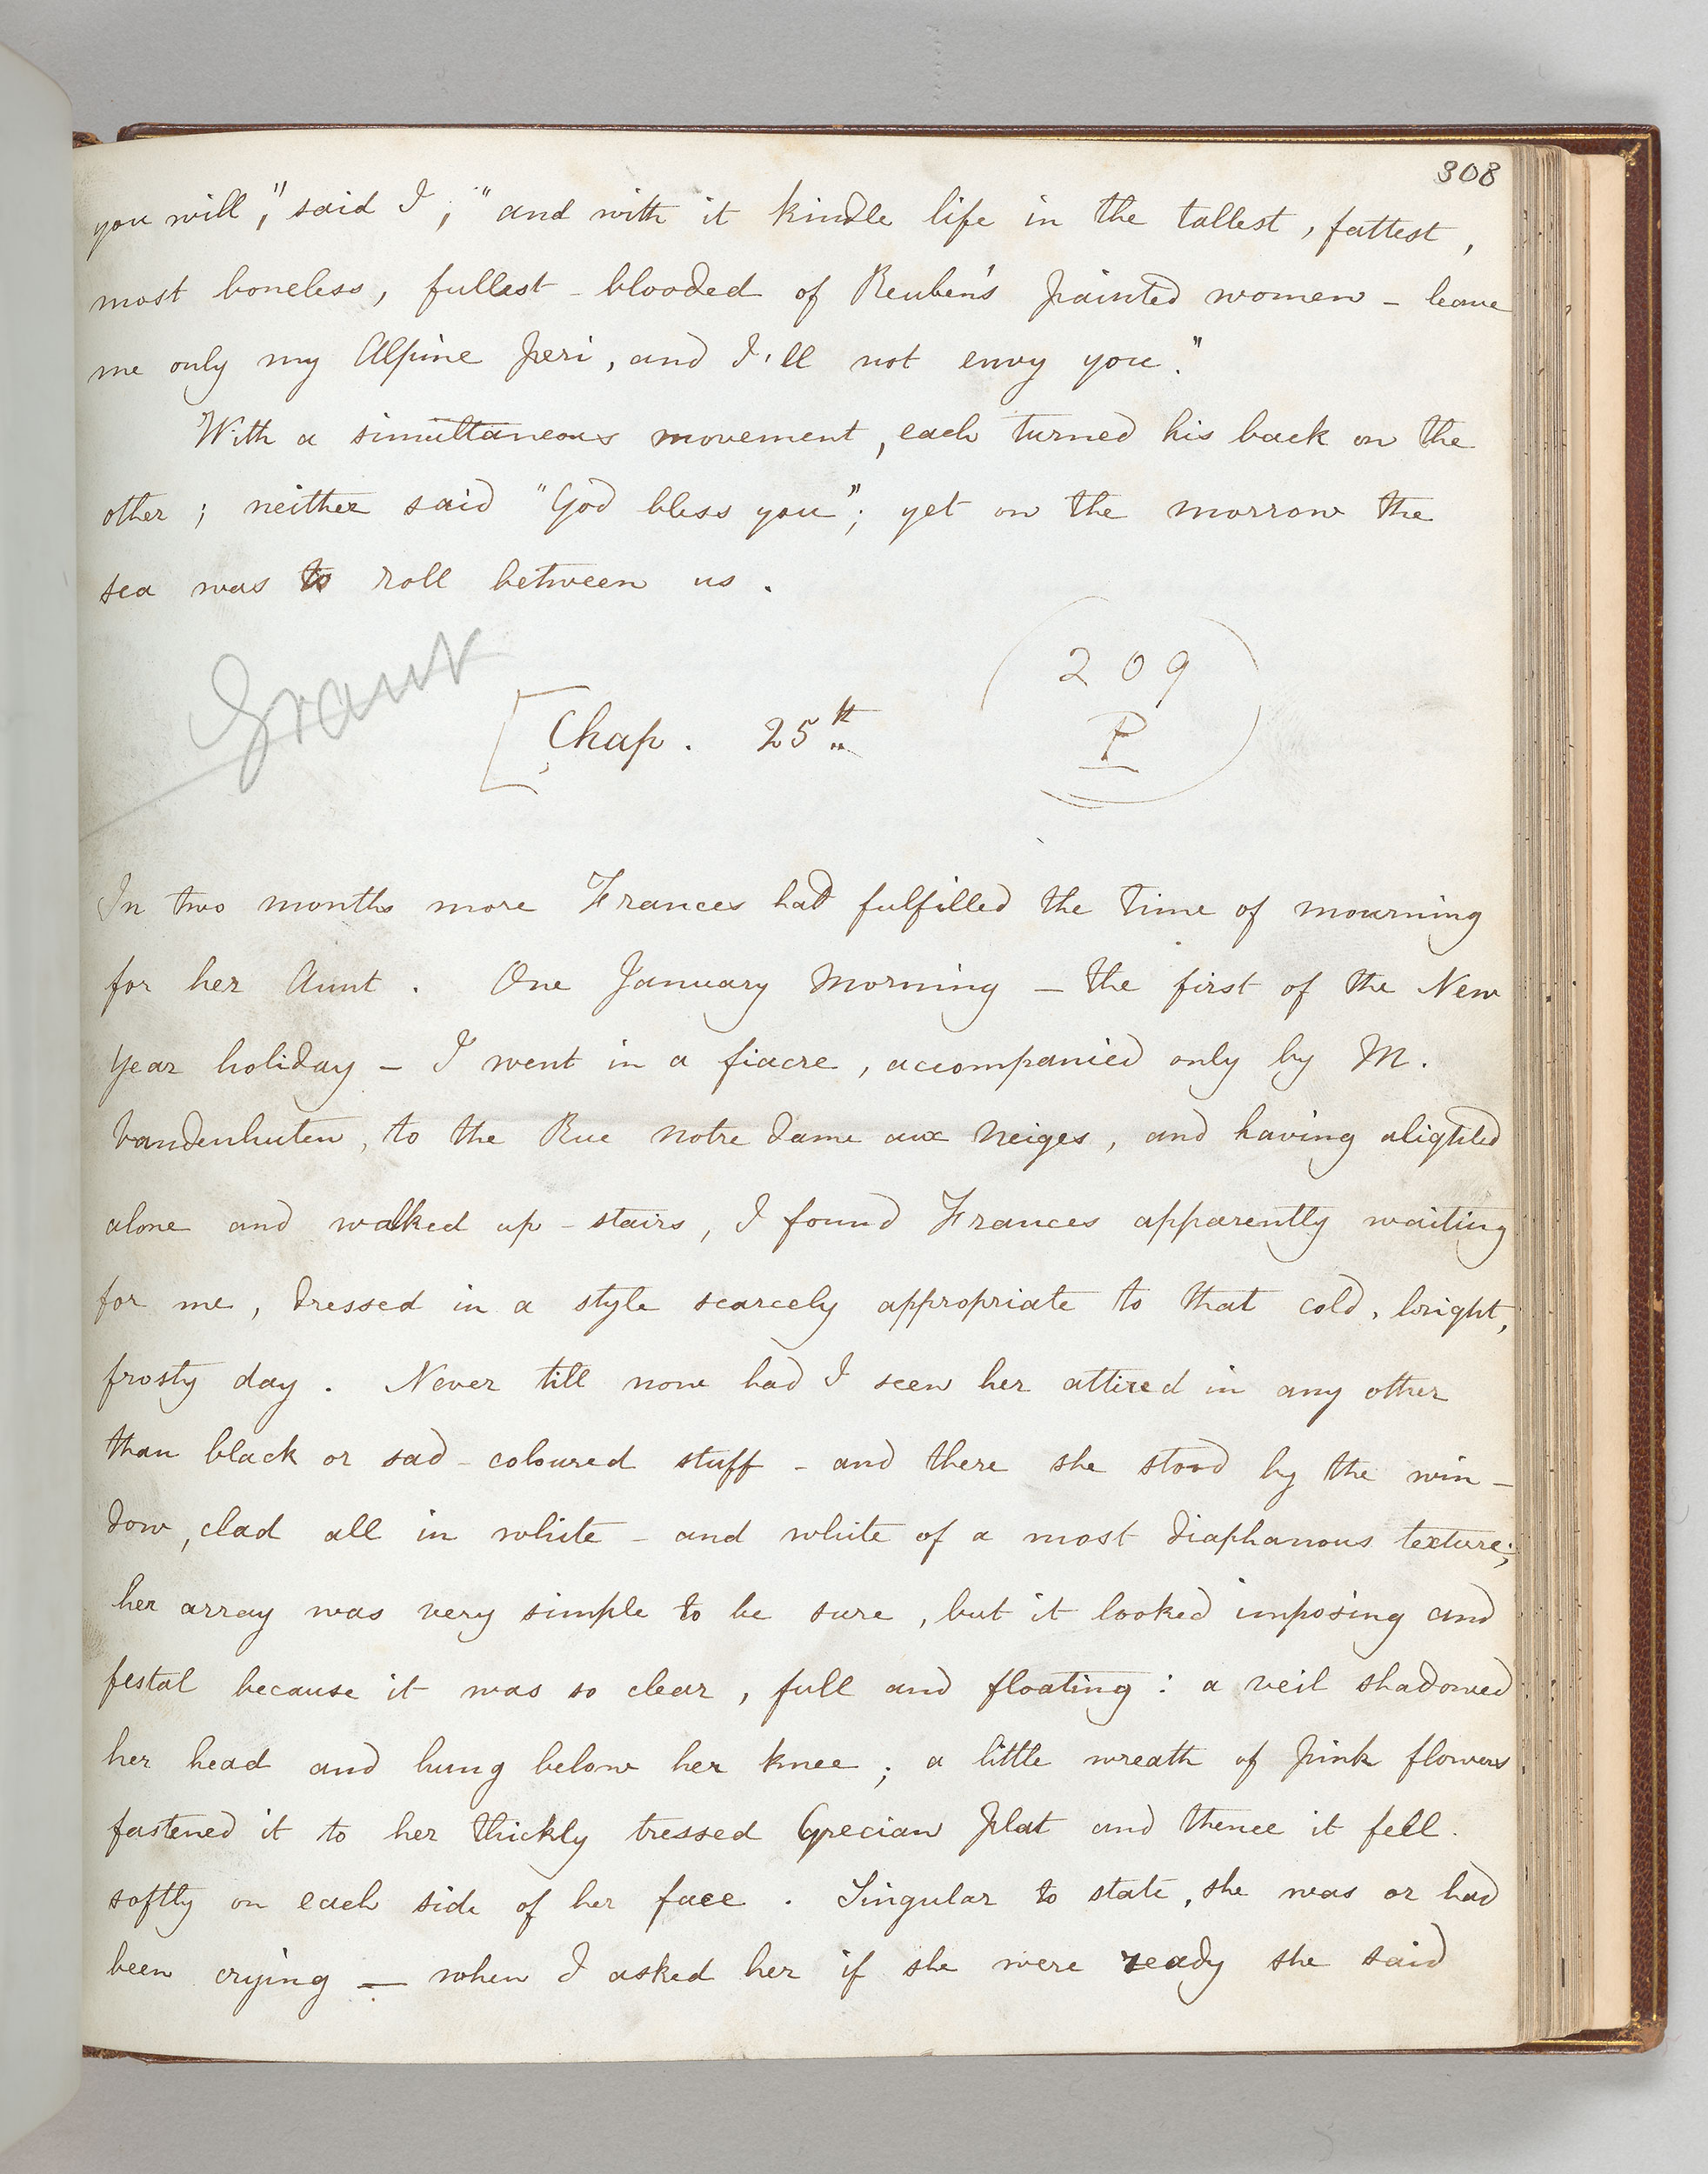 308
you will," said I, "and with it kindle life in the tallest, fattest,
most boneless, fullest-blooded of Reuben's painted women - leave
me only my Alpine Peri, and I'll not envy you."
With a simultaneous movement, each turned his back on the
other; neither said "God bless you"; yet on the morrow the
sea was to roll between us.
Grant
209
[Chap. 25th
P
In two months more Frances had fulfilled the time of mourning
for her Aunt. One January Morning - the first of the New
Year holiday - I went in a fiacre, accompanied only by M.
Vandenhuten, to the Rue Notre Dame aux Neiges, and having alighted
alone and walked up-stairs, I found Frances apparently waiting
for me, dressed in a style scarcely appropriate to that cold, bright,
frosty day. Never till now had I seen her attired in any other
than black or sad-coloured stuff - and there she stood by the win-
dow, clad all in white - and white of a most diaphanous texture;
her array was very simple to be sure, but it looked imposing and
festal because it was so clear, full and floating: a veil shadowed
her head and hung below her knee; a little wreath of pink flowers
fastened it to her thickly tressed Grecian plat and thence it fell
softly on each side of her face. Singular to state, she was or had
been crying - when I asked her if she were ready she said